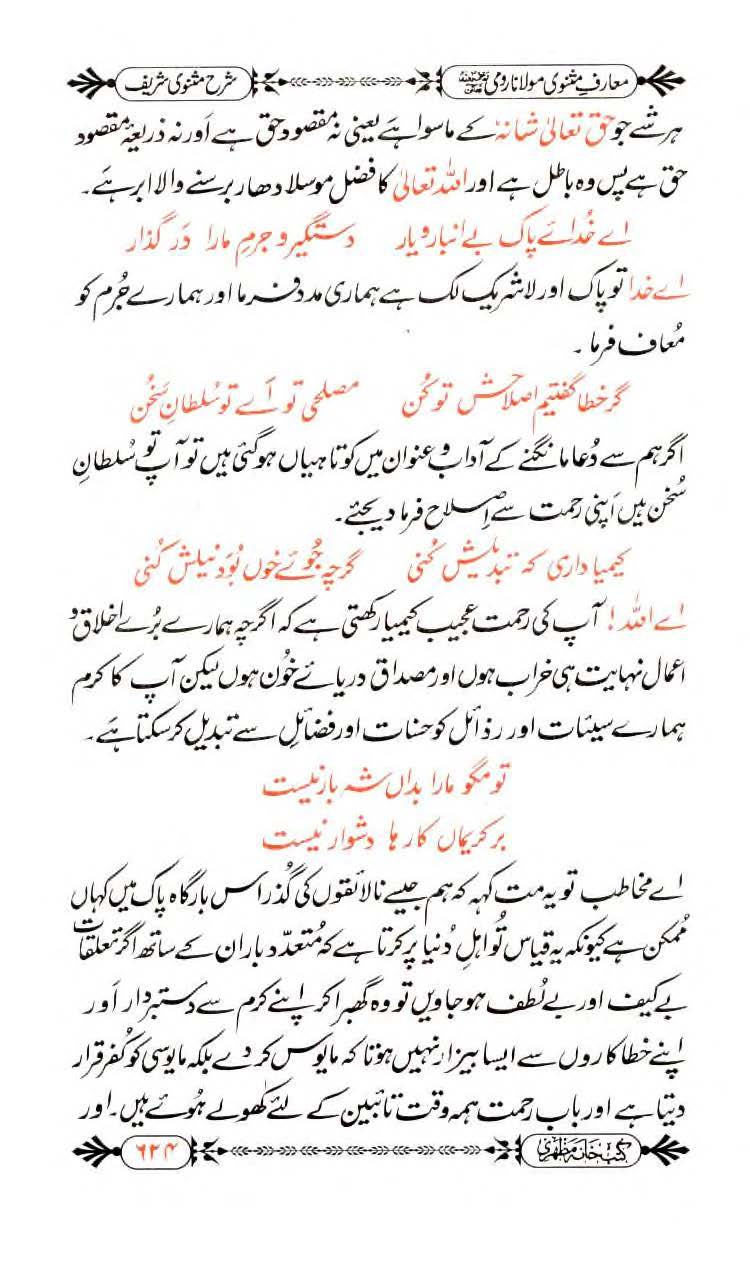 معارفِ مثنوی مولانا رومی
شرح مثنوی شریف
ہر شے جو حق تعالیٰ شانہٗ کے ماسوا ہے یعنی نہ مقصود حق ہے اَور نہ ذریعۂ مقصود
حق ہے پس وہ باطل ہے اور اللہ تعالیٰ کا فضل موسلا دھار برسنے والا ابر ہے۔
اے خُدائے پاک بے انباز و یار دستگیر و جرمِ مارا دَر گذار
اے خدا تو پاک اور لاشریک لک ہے ہماری مدد فرما اور ہمارے جُرم کو
مُعاف فرما ۔
گر خطا گفتیم اصلاحش تو کُن مصلحی تو اَے تو سُلطانِ سَخُن
اگر ہم سے دُعا مانگنے کے آداب و عنوان میں کوتاہیاں ہوگئی ہیں تو آپ تو سُلطانِ
سُخن ہیں اَپنی رحمت سے اِصلاح فرما دیجئے۔
کیمیا داری کہ تبدیلش کُنی گرچہ جُوئے خوں بُوَد نیلش کُنی
اے اللہ! آپ کی رحمت عجیب کیمیا رکھتی ہے کہ اگرچہ ہمارے بُرے اخلاق و
اعمال نہایت ہی خراب ہوں اور مصداق دریائے خُون ہوں لیکن آپ کا کرم
ہمارے سیئات اور رذائل کو حسنات اور فضائلِ سے تبدیل کرسکتا ہَے۔
تو مگو مارا بداں شہ بار نیست
بر کریماں کارہا دشوار نیست
اے مخاطب تو یہ مت کہہ کہ ہم جیسے نالائقوں کی گُذر اس بارگاہ پاک میں کہاں
مُمکن ہے کیونکہ یہ قیاس تُو اہلِ دُنیا پر کرتا ہے کہ مُتعدّد باران کے ساتھ اگر تعلقات
بے کیف اور بے لُطف ہو جاویں تو وہ گھبرا کر اپنے کرم سے دستبردار اَور
اپنے خطا کاروں سے ایسا بیزار نہیں ہوتا کہ مایوس کر دے بلکہ مایوسی کو کُفر قرار
دیتا ہے اور باب رحمت ہمہ وقت تائبین کے لئے کھولے ہُوئے ہیں۔ اور
کتب خانہ مظہری
۶۲۴